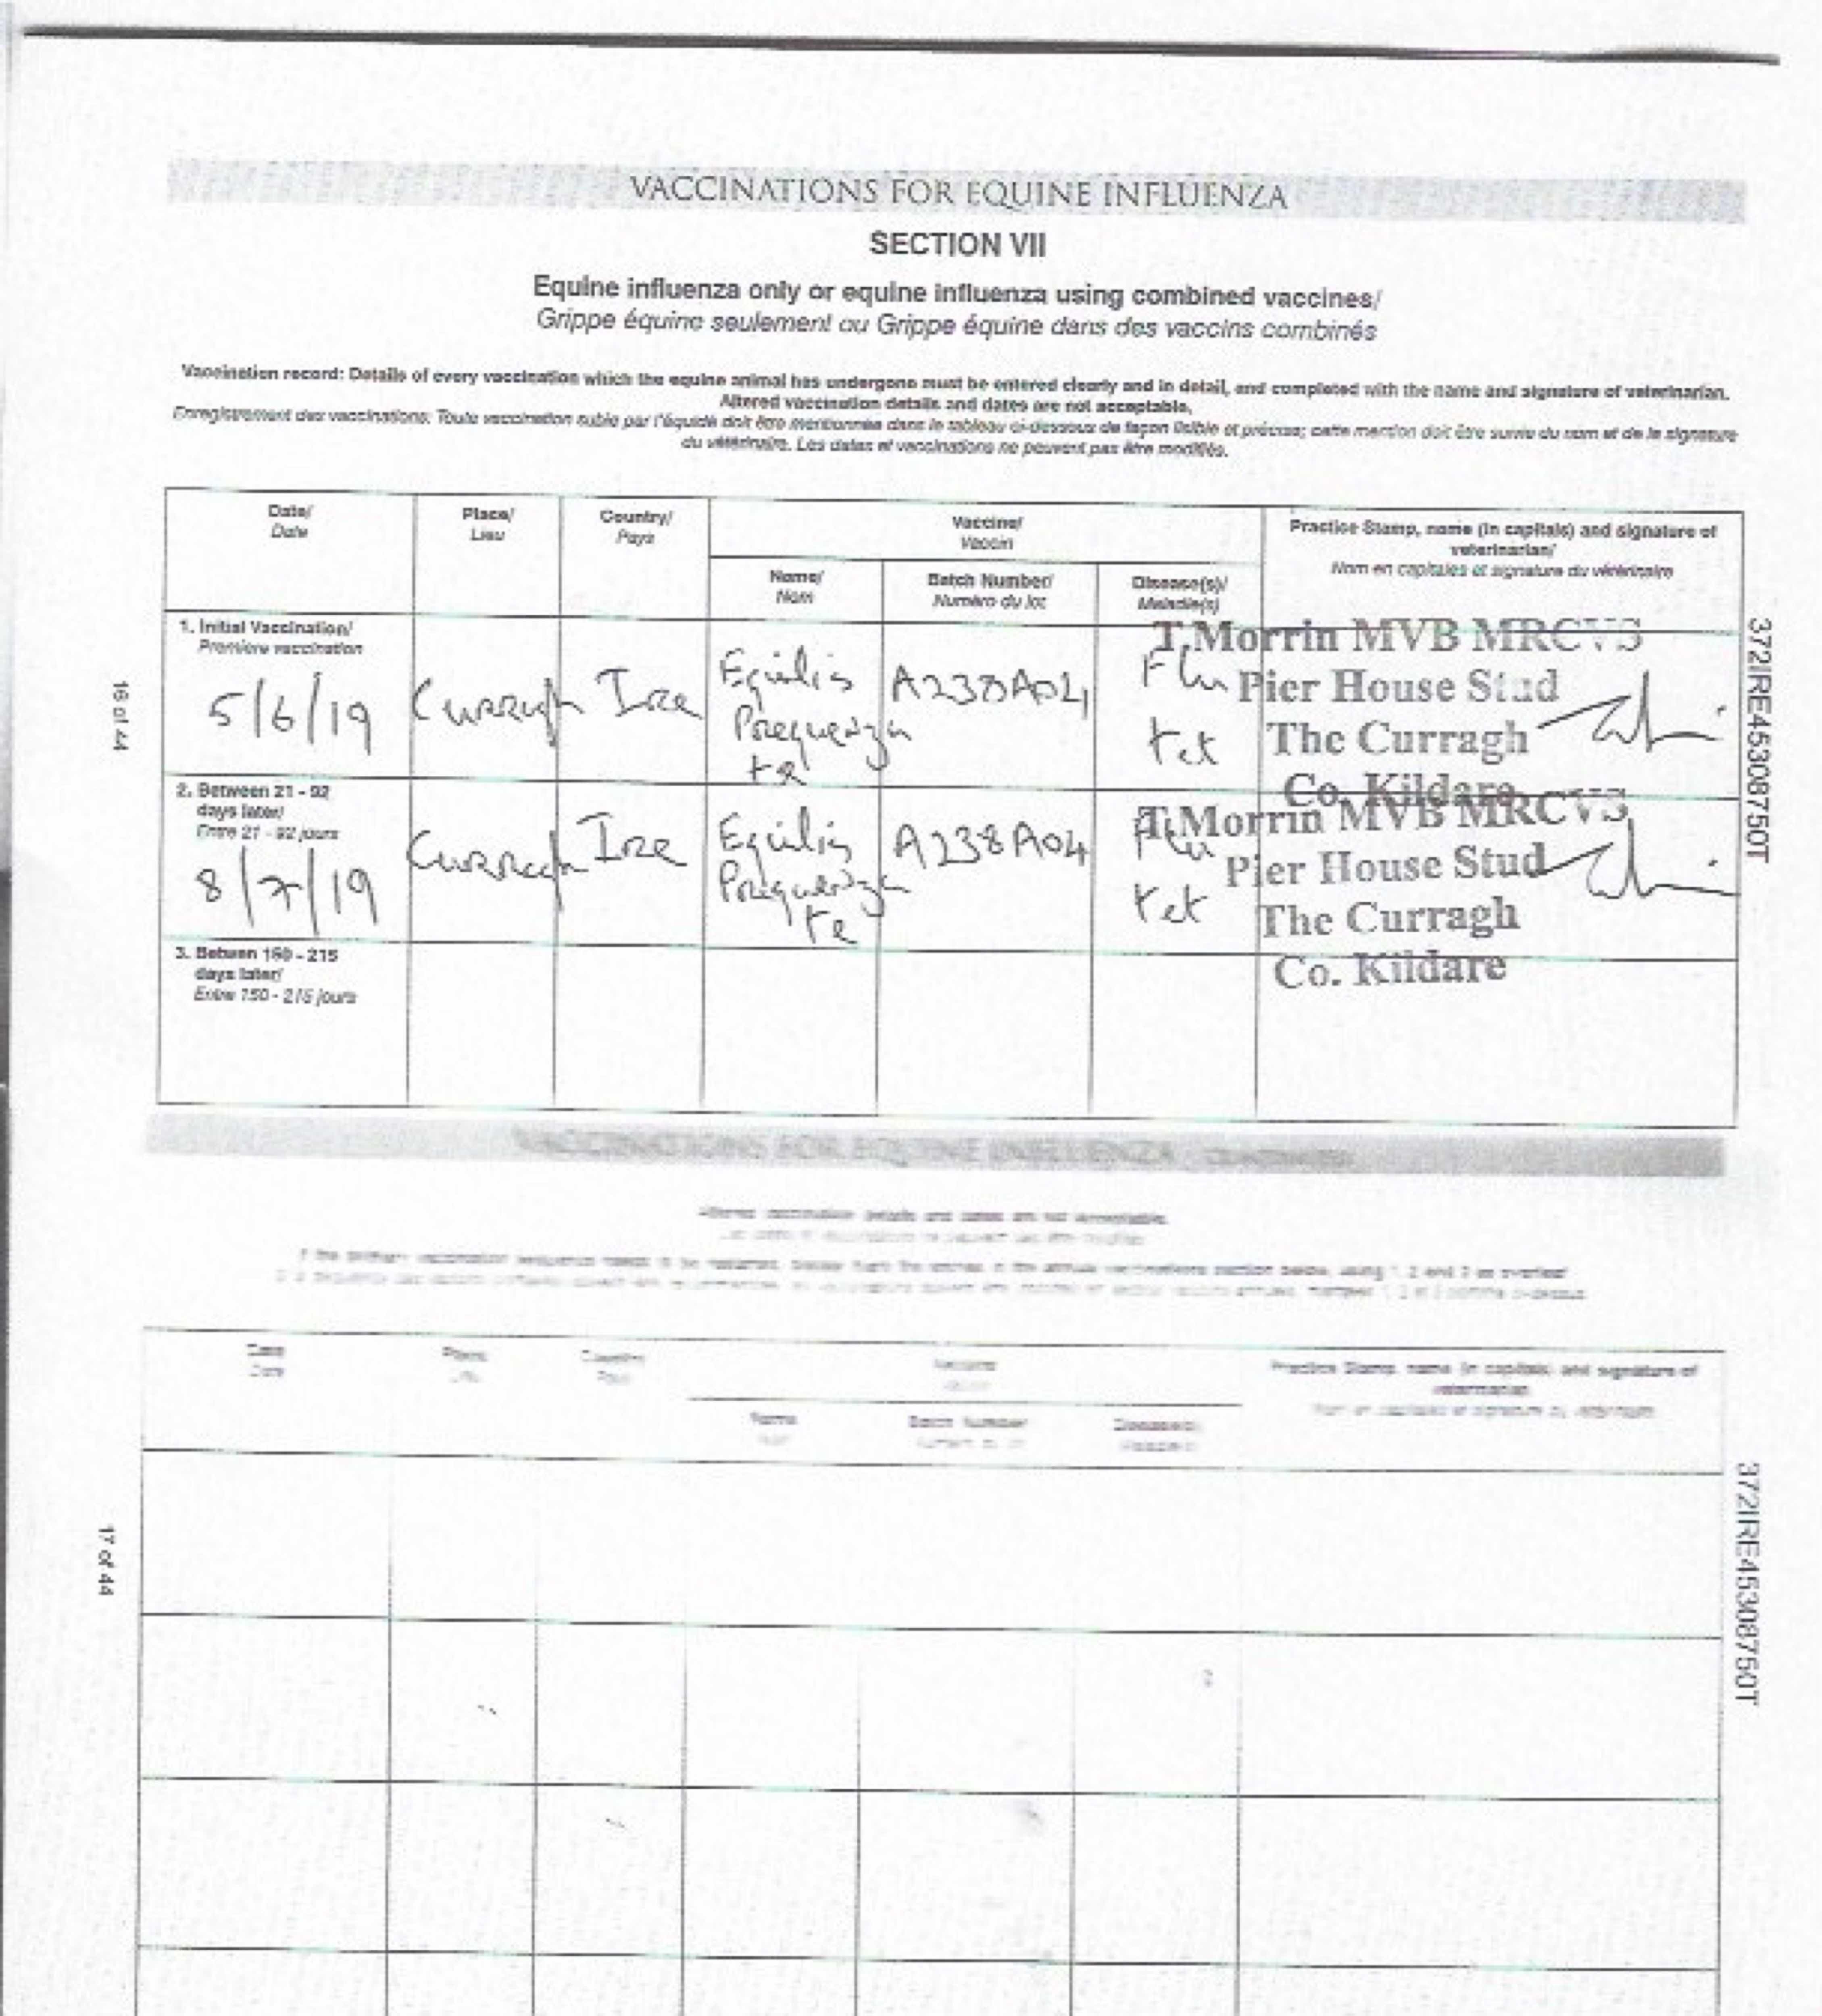 VACCINATIONS FOR EQUINE INFLUENZA
SECTION VII
Equine influenza only or equine influenza using combined vaccines/
Grippe équine seulement ou Grippe équine dans des vaccins combinés
Vaccination record: Details of every vaccination which the equine animal has undergone must be entered clearly and in detail, and completed with the name and signature of veterinarian.
Altered vaccination details and dates are not acceptable.
Enregistrement des vaccinations: Toute vaccination subie par l'équidé doit être mentionnée dans le tableau ci-dessous de façon lisible et précise; cette mention doit être suivie du nom et de la signature
du vétérinaire. Les dates et vaccinations ne peuvent pas être modifiés.
Date/
Date
Place/
Lieu
Country/
Pays
Vaccine/
Vaccin
Practice Stamp, name (in capitals) and signature of
veterinarian/
Nom en capitales et signature du vétérinaire
Name/
Nom
Batch Number/
Numéro du lot
Disease(s)/
Maladie(s)
1. Initial Vaccination/
Première vaccination
5/6/19
Curragh
Ire
Equilis
Prequenza
te
A238A04
Flu
tet
T.Morrin MVB MRCVS
Pier House Stud
The Curragh
Co. Kildare
2. Between 21 - 92
days later/
Entre 21 - 92 jours
8/7/19
Curragh
Ire
Equilis
Prequenza
te
A238A04
Flu
tet
T.Morrin MVB MRCVS
Pier House Stud
The Curragh
Co. Kildare
3. Betwen 150 - 215
days later/
Entre 150 - 215 jours
16 of 44
372IRE45308750T
VACCINATIONS FOR EQUINE INFLUENZA
Altered vaccination details and dates are not acceptable.
Date
Date
Place
Country
Name
Batch Number
Practice Stamp, name (in capitals) and signature of
veterinarian
17 of 44
372IRE45308750T